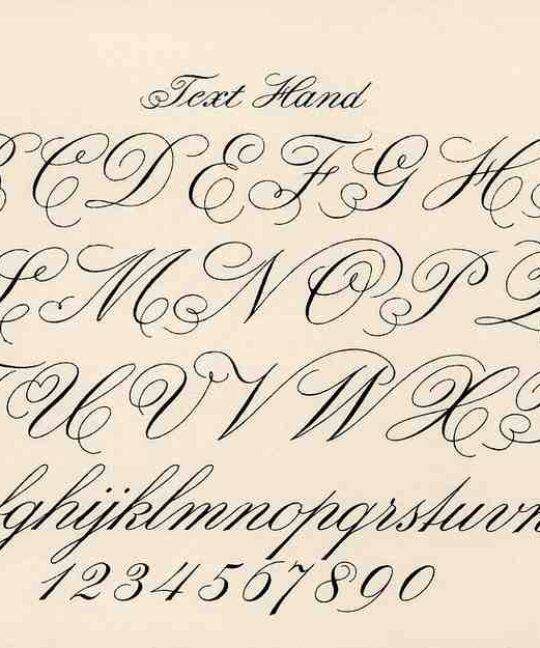 Text Hand
B C D E F G H
L M N O P Q
T U V W X
fghijklmnopqrstuvw
1 2 3 4 5 6 7 8 9 0